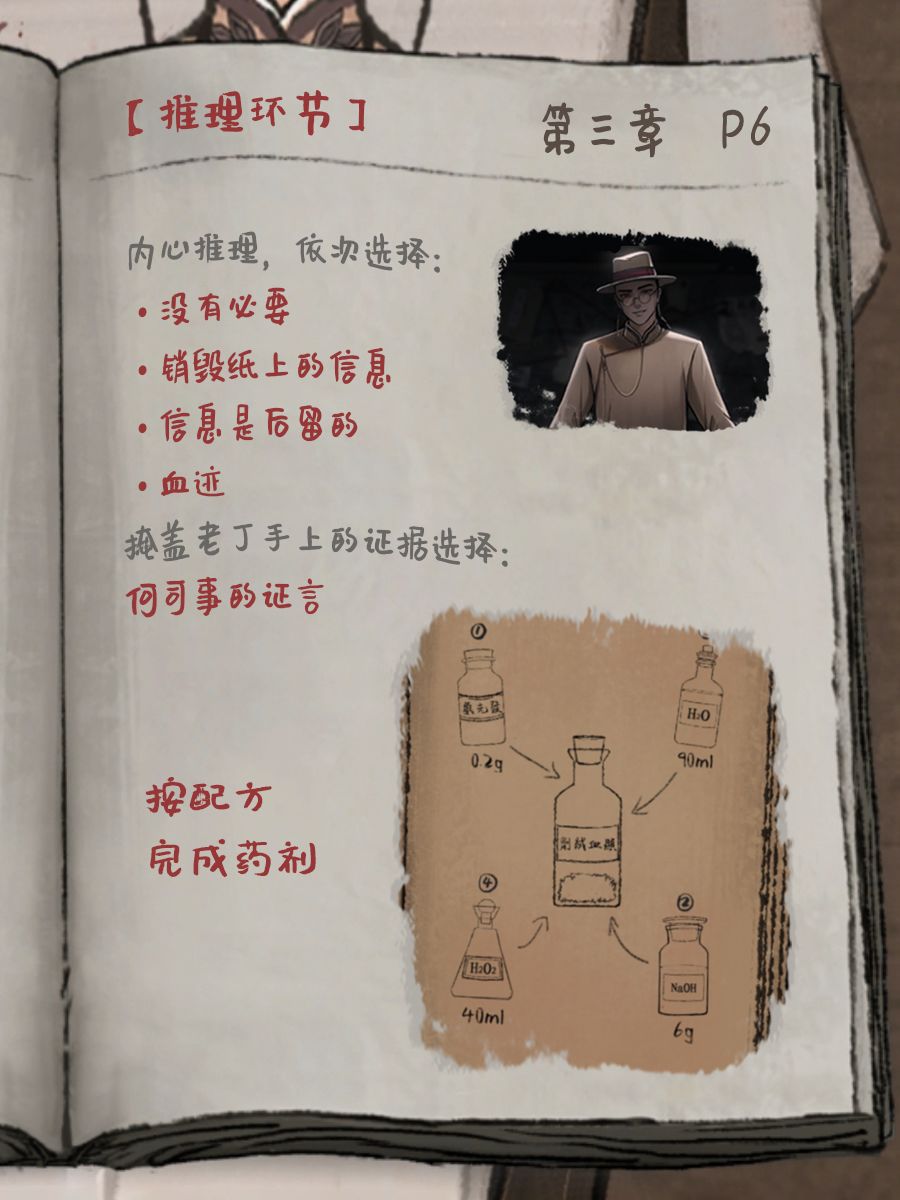 【推理环节】
第三章 P6
内心推理，依次选择：
·没有必要
·销毁纸上的信息
·信息是后留的
·血迹
掩盖老丁手上的证据选择：
何司事的证言
按配方
完成药剂
①
0.2g
H₂O
90ml
④
H₂O₂
40ml
②
NaOH
6g